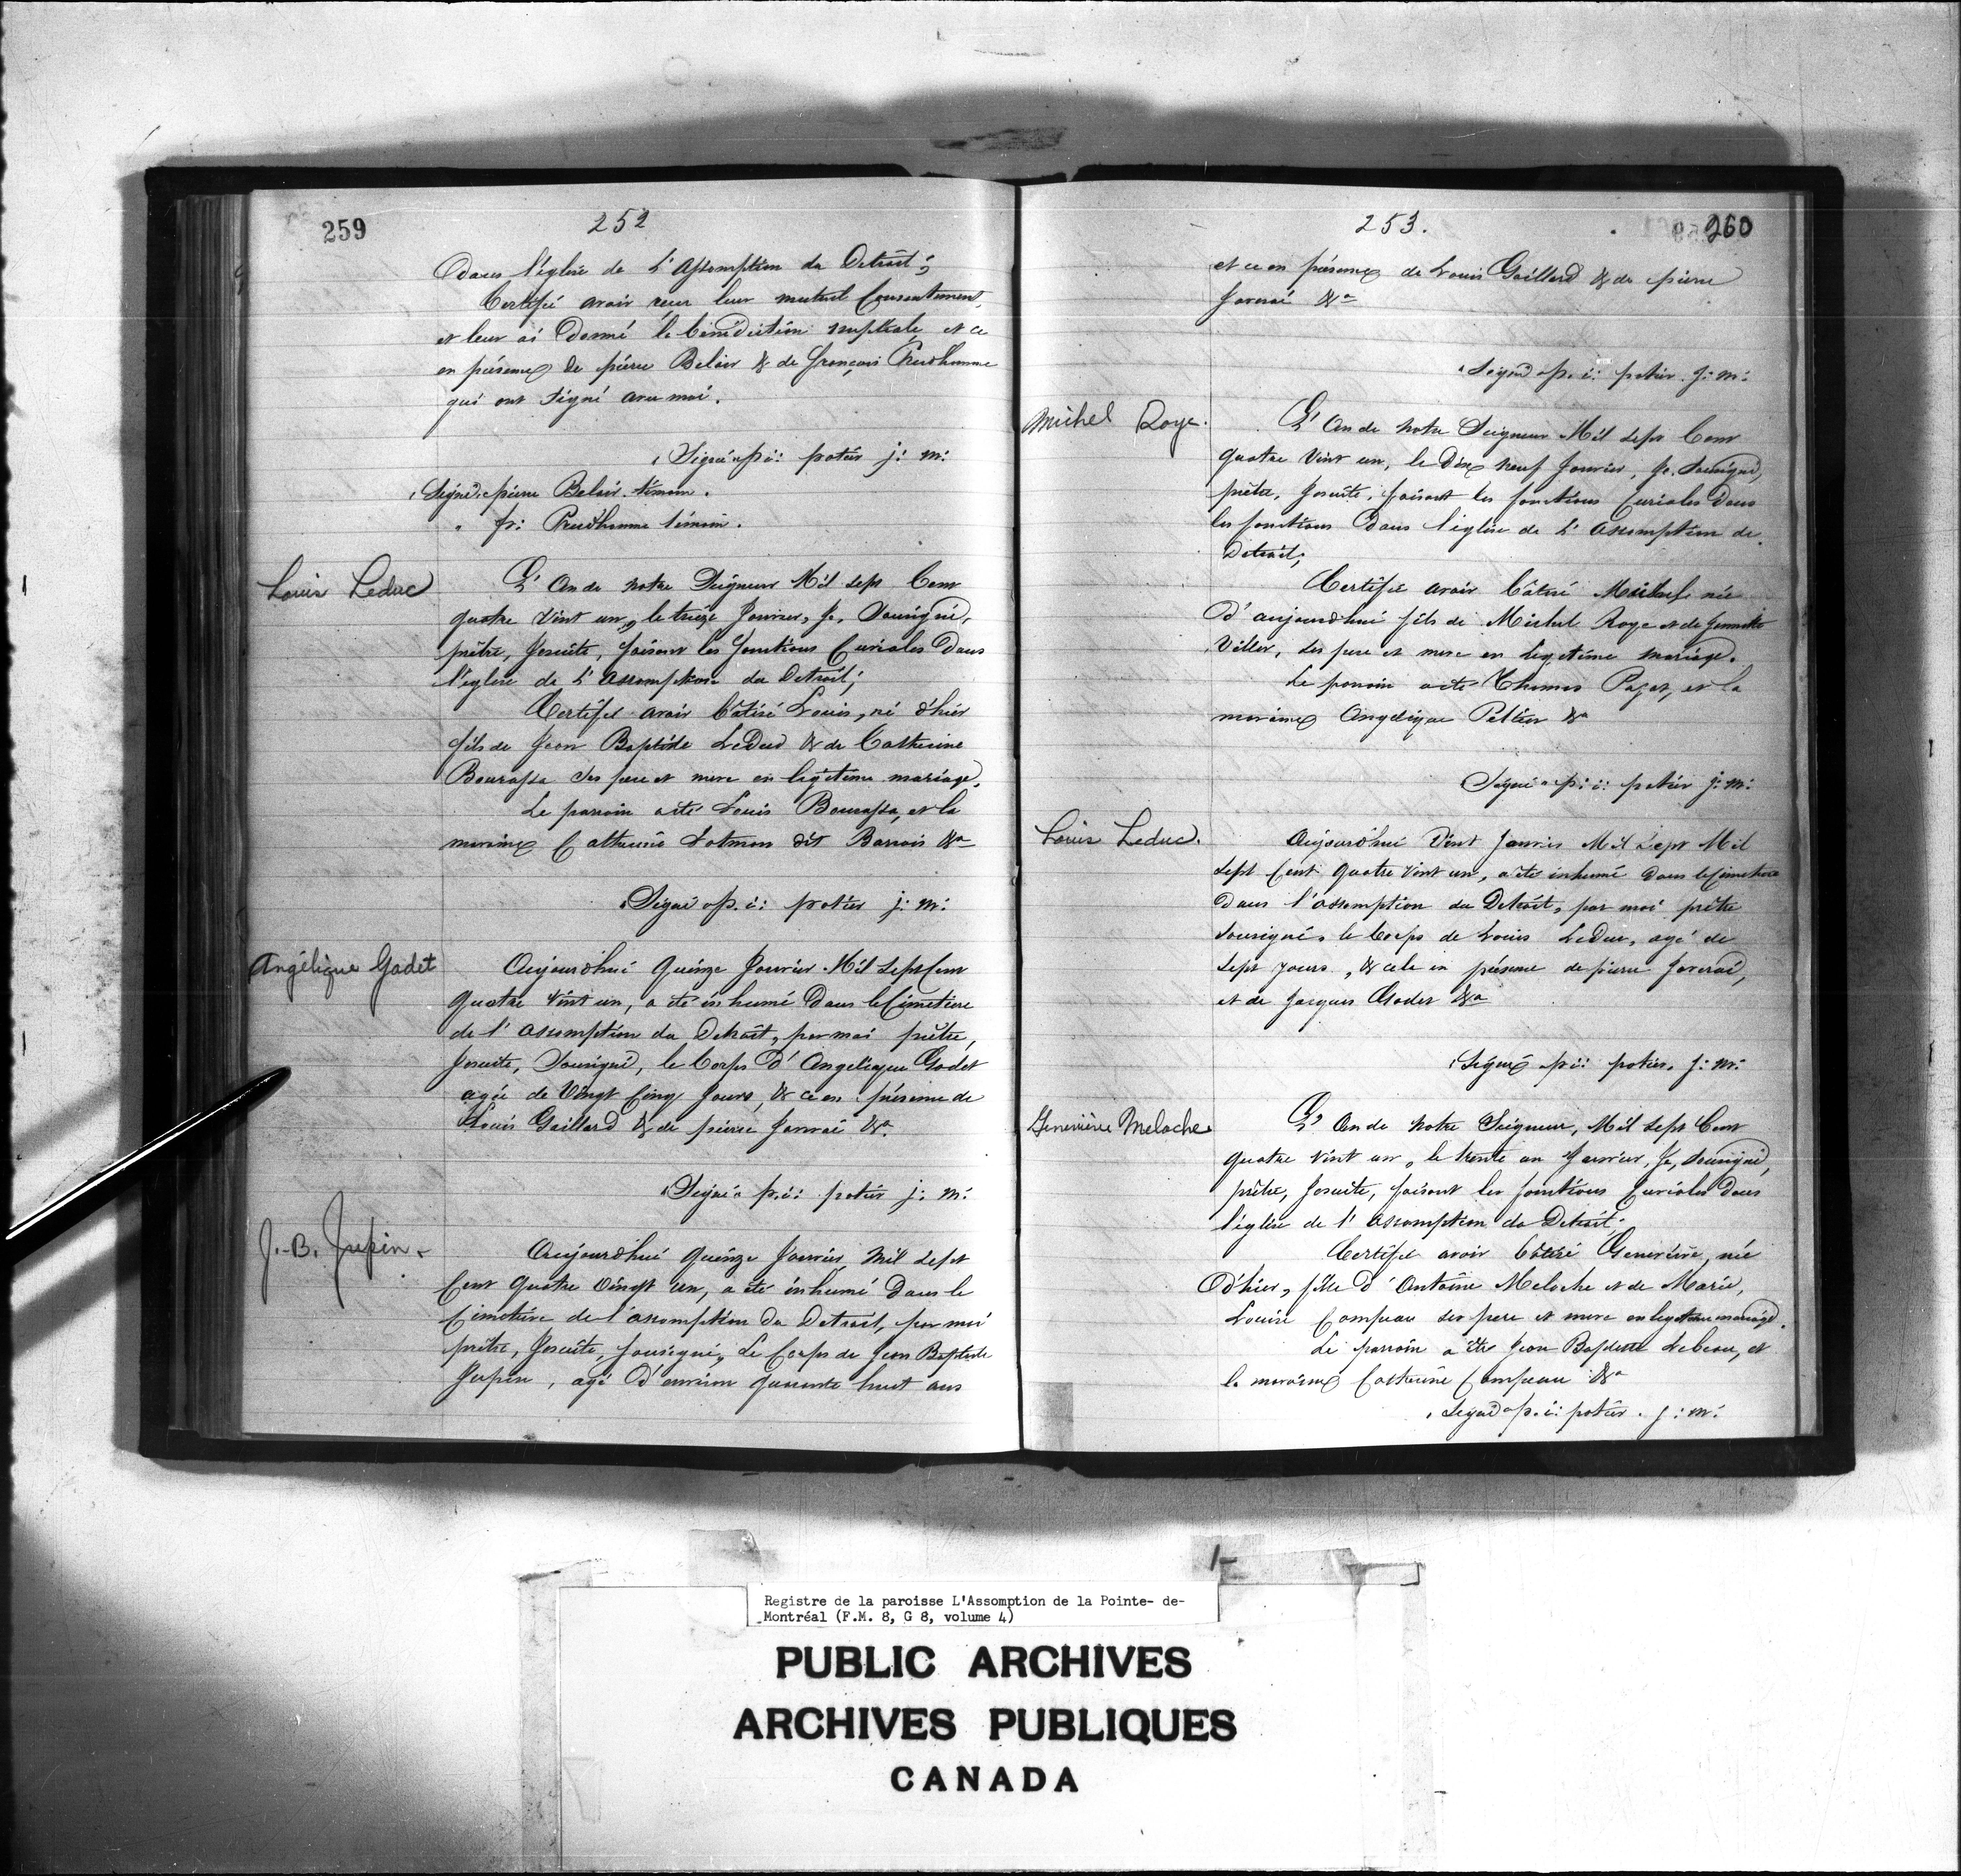 259
252
Dans l'église de L'Assomption du Detroit;
Certifié avoir reçu leur mutuel Consentement,
et leur ai Donné la bénédiction nuptiale et ce
en présence de pierre Belair & de françois Prudhomme
qui ont signé avec moi.
Signé p: i: potier j: m:
Signé pierre Belair témoin.
" fr: Prudhomme témoin.
Louis Leduc
L'An de notre Seigneur Mil sept Cent
quatre vint un, le treize Janvier, Je, Sousigné,
prêtre, Jesuite, faisant les fonctions Curiales Dans
l'église de L'Assomption du Detroit;
Certifie avoir bâtisé Louis, né d'hier
fils de Jean Baptiste LeDuc & de Catherine
Bourassa ses pere et mere en legitime mariage.
Le parrain a été Louis Bourassa, et la
maraine Catherine Lotman dit Barrois &a
Signé p. i: potier j: m:
Angélique Godet
Aujourdhui Quinze Janvier Mil sept Cent
Quatre vint un, a été inhumé Dans le Cimetiere
de l'assomption du Detroit, par moi prêtre,
Jesuite, Sousigné, le Corps D'Angelique Godet
agée de Vingt Cinq Jours, & ce en présence de
Louis Gaillard & de pierre Janvai &a
Signé p. i: potier j: m:
J.-B. Jupin
Aujourdhui Quinze Janvier Mil sept
Cent Quatre Vingt un, a été inhumé Dans le
Cimetiere de l'assomption du Detroit, par moi
prêtre, Jesuite, sousigné, Le Corps de Jean Baptiste
Jupin, agé D'environ quarante huit ans
253.
260
et ce en présence de Louis Gaillard & de pierre
Janvai &a
Signé p. i: potier j: m:
Michel Roye.
L'An de notre Seigneur Mil sept Cent
Quatre Vint un, le Dix neuf Janvier, Je, Sousigné,
prêtre, Jesuite, faisant les fonctions Curiales Dans
les fonctions Dans l'église de L'assomption de
Detroit;
Certifie avoir bâtisé Michel né
D'aujourdhui fils de Michel Roye et de
Viller, ses pere et mere en legitime mariage.
Le parrain a été Thomas Pajot, et la
maraine Angelique Peltier &a
Signé p: i: potier j: m:
Louis Leduc.
Aujourdhui Vint Janvier Mil Sept Mil
Sept Cent Quatre Vint un, a été inhumé dans le Cimetiere
Dans l'assomption du Detroit, par moi prêtre
sousigné, le Corps de Louis LeDuc, agé de
sept jours, & cela en présence de pierre Janvai,
et de Jacques Godet &a
Signé p: i: potier. j: m:
Geneviève Meloche
L'An de notre Seigneur, Mil sept Cent
quatre vint un, le trente un Janvier, Je, sousigné,
prêtre, Jesuite, faisant les fonctions Curiales Dans
l'église de l'assomption du Detroit;
Certifie avoir bâtisé Genevieve, née
D'hier, fille d'Antoine Meloche et de Marie,
Louise Campeau ses pere et mere en legitime mariage.
Le parrain a été Jean Baptiste Lebeau, et
la maraine Catherine Campeau &a
Signé p. i: potier. j: m:
Registre de la paroisse L'Assomption de la Pointe- de-
Montréal (F.M. 8, G 8, volume 4)
PUBLIC ARCHIVES
ARCHIVES PUBLIQUES
CANADA